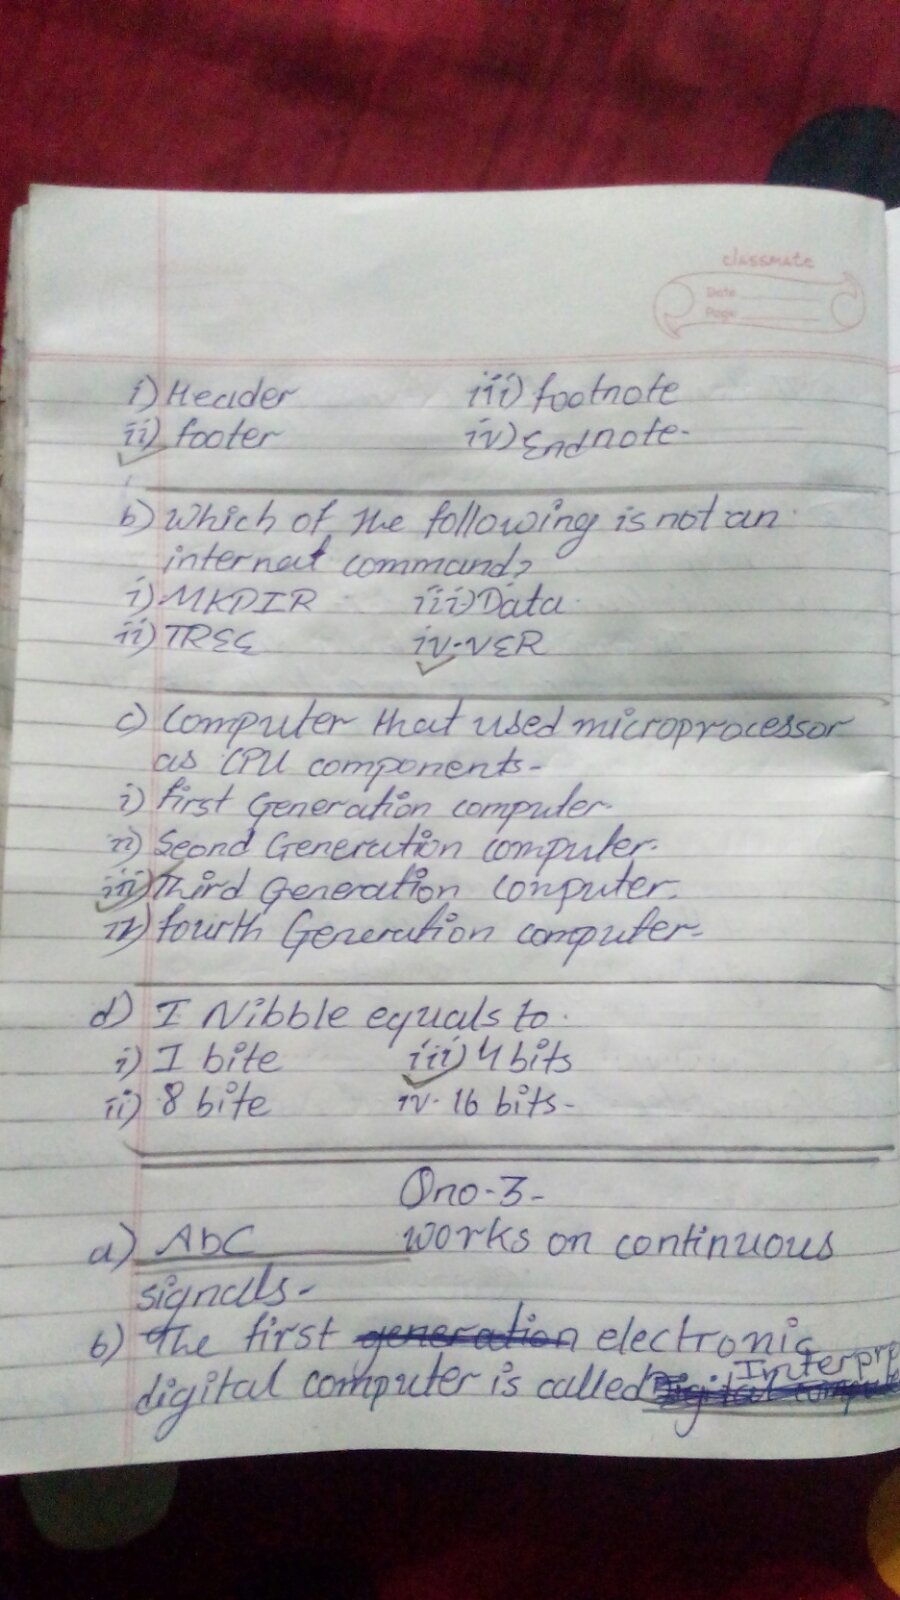 classmate
Date
Page
i) Header iii) footnote
ii) footer iv) Endnote-
b) Which of the following is not an
internal command?
i) MKDIR iii) Data
ii) TREE iv- VER
c) Computer that used microprocessor
as CPU components-
i) first Generation computer-
ii) Seond Generation computer.
iii) Third Generation Computer.
iv) fourth Generation computer-
d) I Nibble equals to.
i) I bite iii) 4 bits
ii) 8 bite iv- 16 bits-
Qno-3-
a) AbC works on continuous
signals-
b) The first generation electronic
digital computer is called